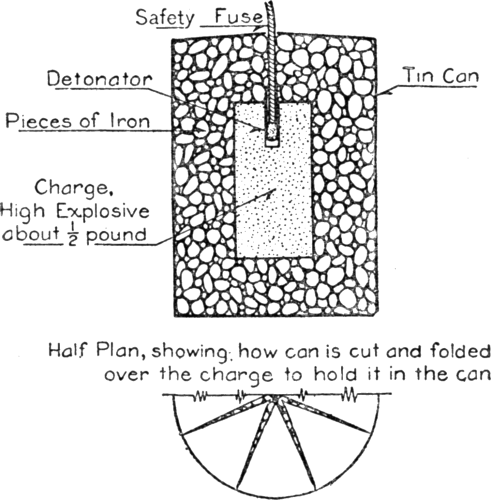 Safety Fuse
Detonator
Tin Can
Pieces of Iron
Charge,
High Explosive
about ½ pound
Half Plan, showing: how can is cut and folded
over the charge to hold it in the can